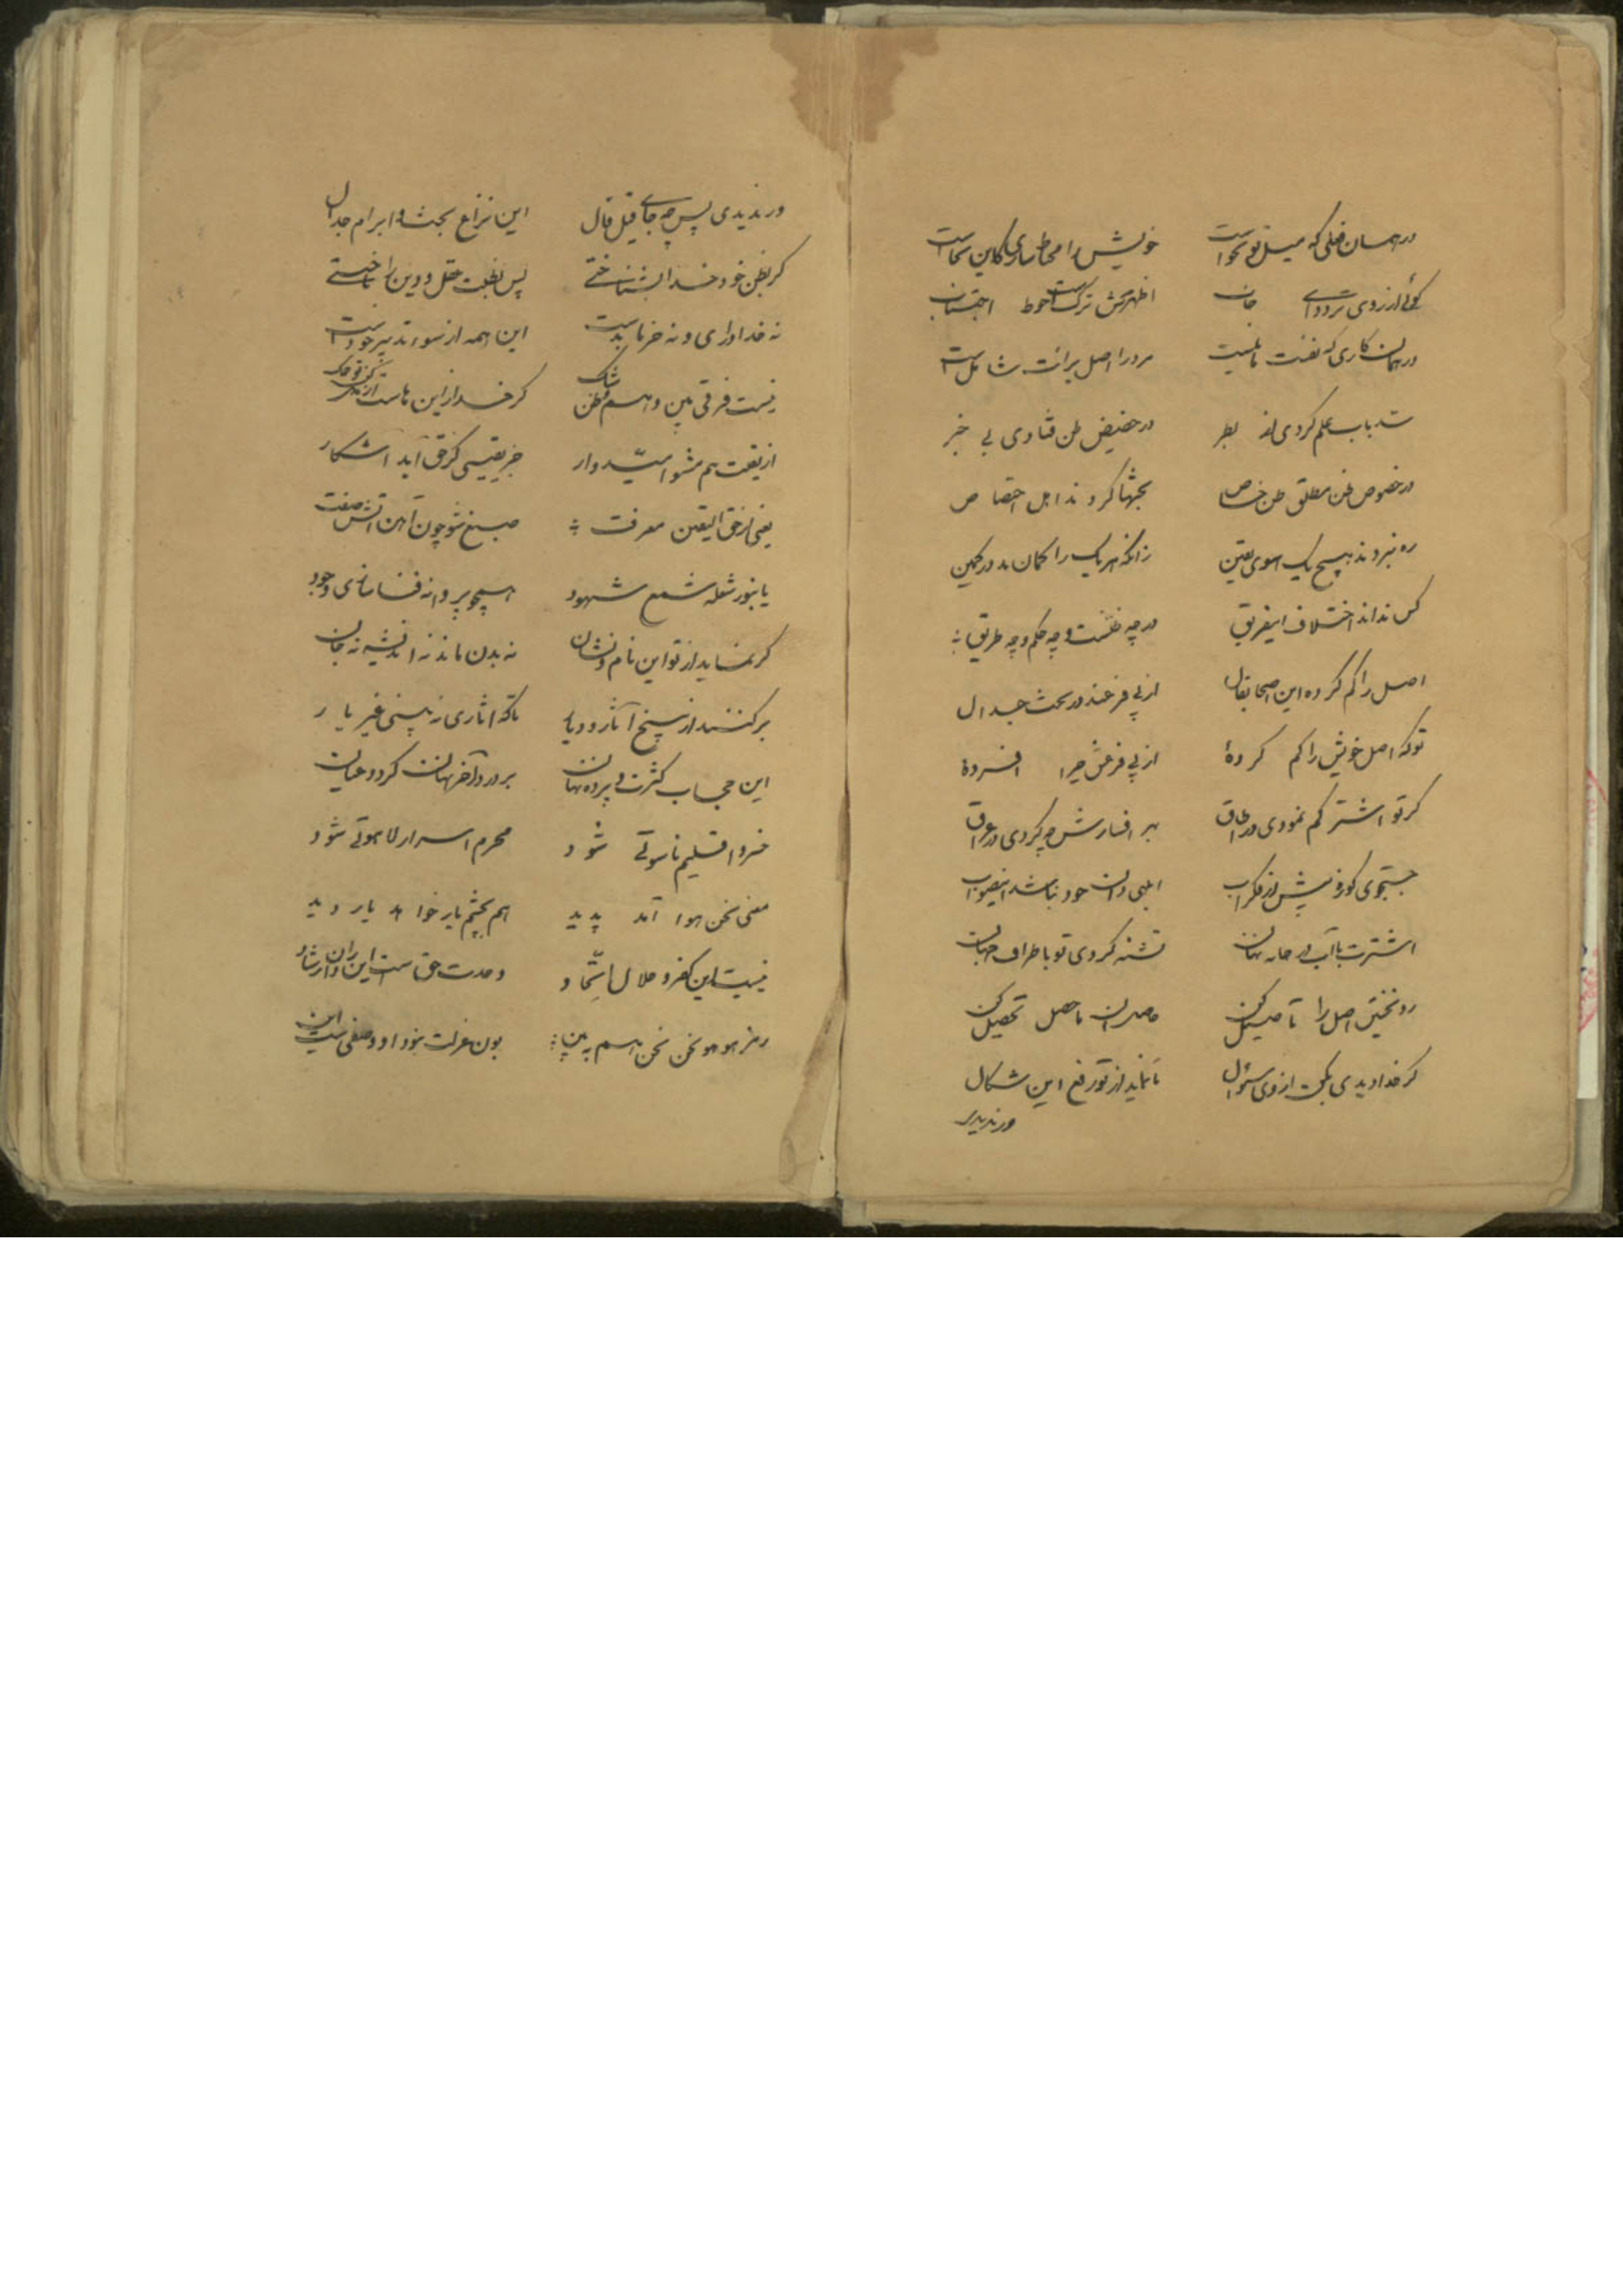 در همان فعلی که میل تو نخواست خویش را محتاط سازی کاین سجاست
گوئی از روی تردد جان اظهرش ترکست احوط اجتناب
در همان کاری که نفست مر ورا اصل برائت شاملست
سد باب علم کردی از نظر در حضیض ظن فتادی بی خبر
در خصوص ظن مطلق ظن خاص بحثها کردند اهل اختصاص
ره نبردند هیچ یک سوی یقین زانکه هر یک را کمان بد در کمین
کس نداند اختلاف این فریق در چه نفسست و چه حکم و چه طریق
اصل را کم کرده این اصحاب قال از پی فرعند در بحث جدال
تو که اصل خویش را کم کردهٔ از پی فرعش چرا افسردهٔ
کر تو اشتر کم نمودی در طاق بر افسارش چه کردی در عراق
جستجوی کوزه پیش از فکر آب ابلهی دان خود نباشد این صواب
اشترت با آب در خانه نهان تشنه کردی تو باطراف جهان
رو نخستین اصل را تأصیل کن بعد از آن ما حصل تحصیل کن
کر خدا دیدی بکن از وی سؤال تا نماید از تو رفع این شکال
ور ندیدی
ور ندیدی پس چه جای قیل قال این نزاع بحث و ابرام جدال
کر بظن خود خدا بشناختی پس بظنت عقل و دین را باختی
نه خدا داری و نه خرما بدست این همه از سوء تدبیر خودست
نیست فرقی بین وهم و ظن و شک کر خدا از این
از یقینت هم مشو امیدوار جز یقینی کز حق آید آشکار
یعنی از حق الیقین معرفت صبغ شو چون آهن آتش صفت
یا بنور شعله شمع شهود همچو پروانه فنا سازی وجود
کر نماید از تو این نام و نشان نه بدن ماند نه اندیشه نه جان
بر کنند از بیخ آثار و دیار تا که آثاری نبینی غیر یار
این حجاب کثرت و پرده نهان بر درد آخر نهان کردد عیان
خسرو اقلیم ناسوتی شود محرم اسرار لاهوتی شود
معنی نحن هو آمد پدید هم بچشم یار خواهد یار دید
نیست این کفر و حلال اتحاد وحدت حق است این
رمز هو هو نحن نحن هم ببین بون عزلت بود او وصفی است این